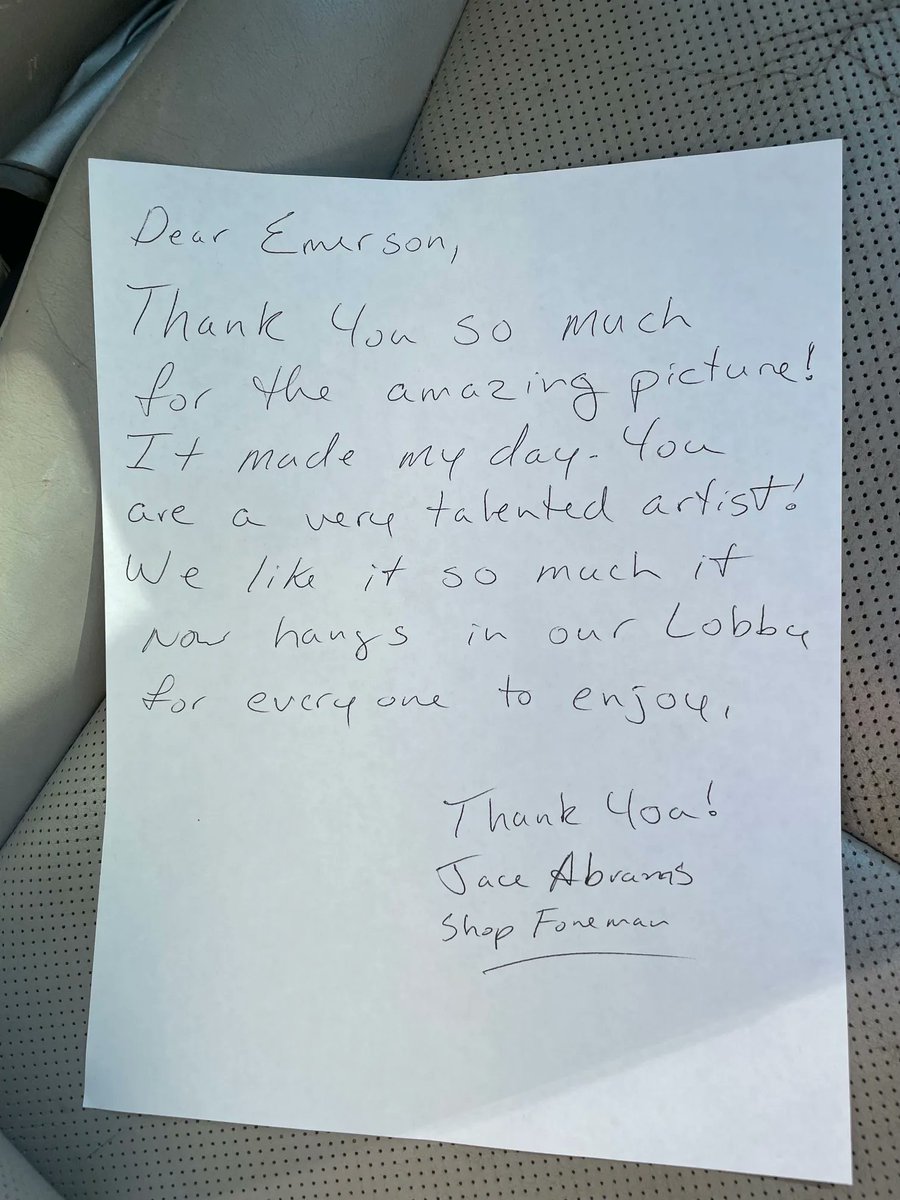 Dear Emerson,
Thank You so much
for the amazing picture!
It made my day. You
are a very talented artist!
We like it so much it
Now hangs in our Lobby
for everyone to enjoy.
Thank You!
Jace Abrams
Shop Foreman